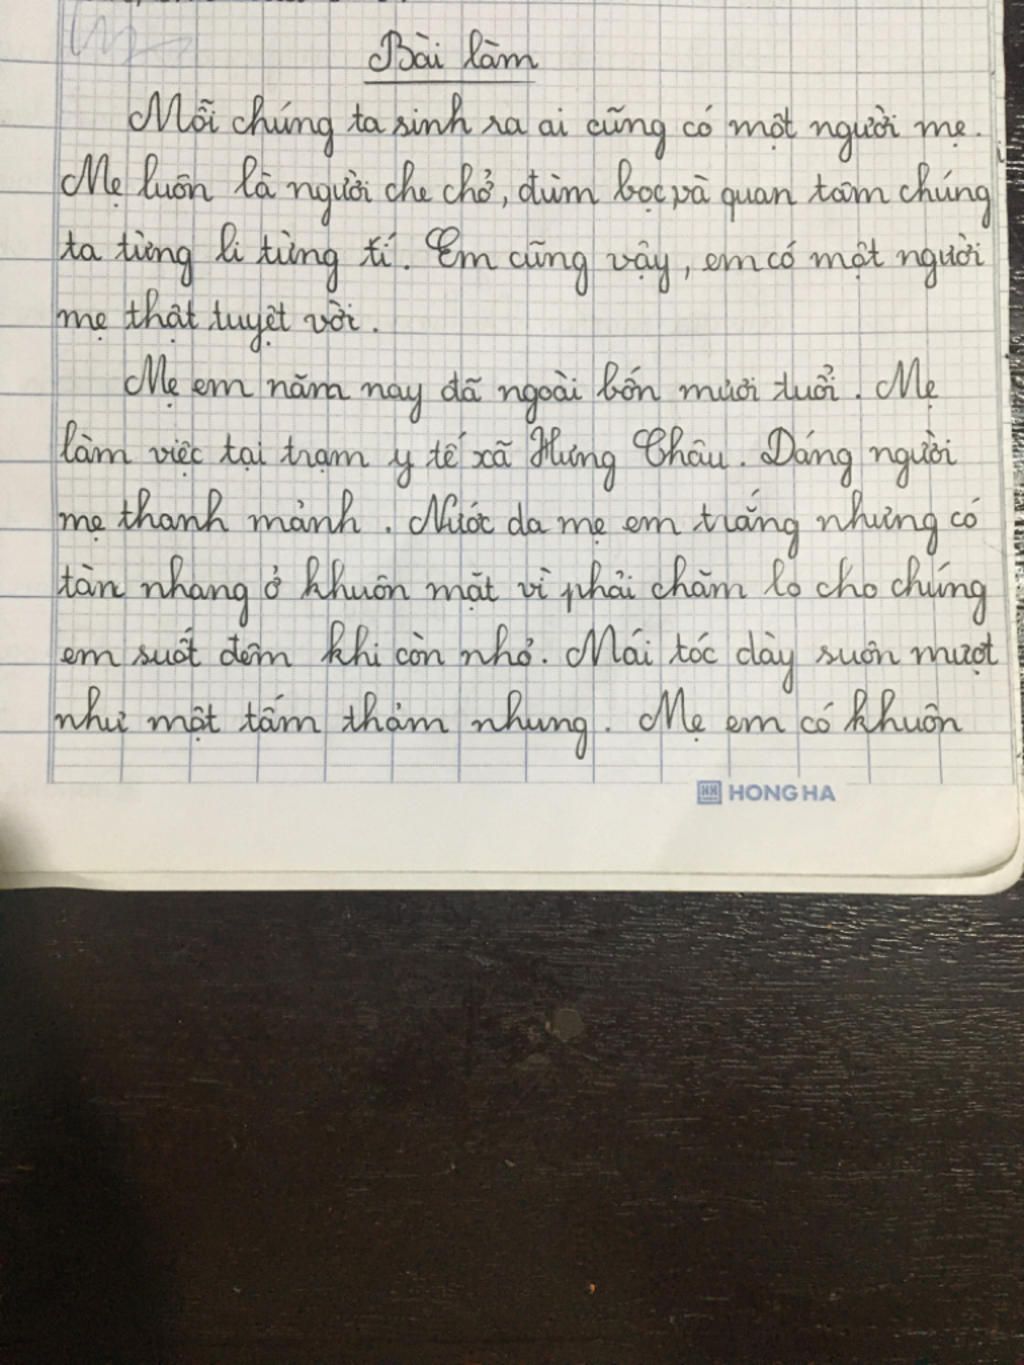 Bài làm
Mỗi chúng ta sinh ra ai cũng có một người mẹ.
Mẹ luôn là người che chở, đùm bọc và quan tâm chúng
ta từng li từng tí. Em cũng vậy, em có một người
mẹ thật tuyệt vời.
Mẹ em năm nay đã ngoài bốn mươi tuổi. Mẹ
làm việc tại trạm y tế xã Hưng Châu. Dáng người
mẹ thanh mảnh. Nước da mẹ em trắng nhưng có
tàn nhang ở khuôn mặt vì phải chăm lo cho chúng
em suốt đêm khi còn nhỏ. Mái tóc dày suôn mượt
như một tấm thảm nhung. Mẹ em có khuôn
HONG HA